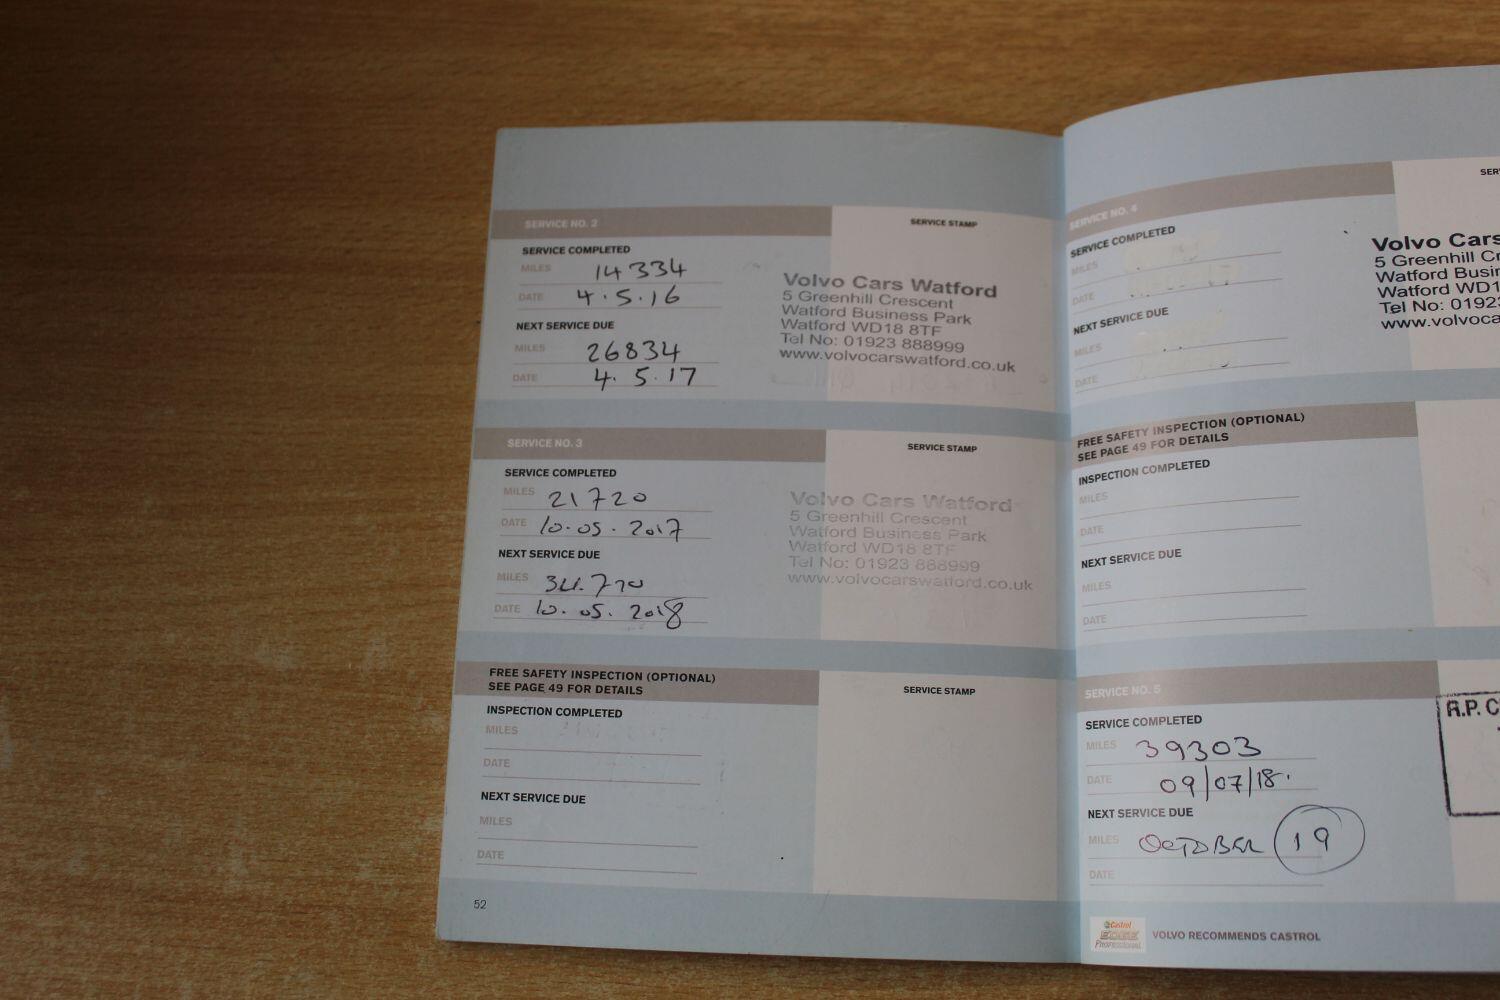 SERVICE NO. 2
SERVICE STAMP
SERVICE COMPLETED
MILES 14334
DATE 4.5.16
NEXT SERVICE DUE
MILES 26834
DATE 4.5.17
Volvo Cars Watford
5 Greenhill Crescent
Watford Business Park
Watford WD18 8TF
Tel No: 01923 888999
www.volvocarswatford.co.uk
SERVICE NO. 3
SERVICE STAMP
SERVICE COMPLETED
MILES 21720
DATE 10.05.2017
NEXT SERVICE DUE
MILES
DATE 10.05.2018
Volvo Cars Watford
5 Greenhill Crescent
Watford Business Park
Watford WD18 8TF
Tel No: 01923 888999
www.volvocarswatford.co.uk
FREE SAFETY INSPECTION (OPTIONAL)
SEE PAGE 49 FOR DETAILS
SERVICE STAMP
INSPECTION COMPLETED
MILES
DATE
NEXT SERVICE DUE
MILES
DATE
52
SERVICE NO. 4
SERVICE COMPLETED
MILES
DATE
NEXT SERVICE DUE
MILES
DATE
Volvo Cars
5 Greenhill
Watford
Watford
Tel No:
FREE SAFETY INSPECTION (OPTIONAL)
SEE PAGE 49 FOR DETAILS
INSPECTION COMPLETED
MILES
DATE
NEXT SERVICE DUE
MILES
DATE
SERVICE NO. 5
SERVICE COMPLETED
MILES 39303
DATE 09/07/18.
NEXT SERVICE DUE
MILES OCTOBER 19
DATE
R.P.
Castrol
EDGE
PROFESSIONAL
VOLVO RECOMMENDS CASTROL